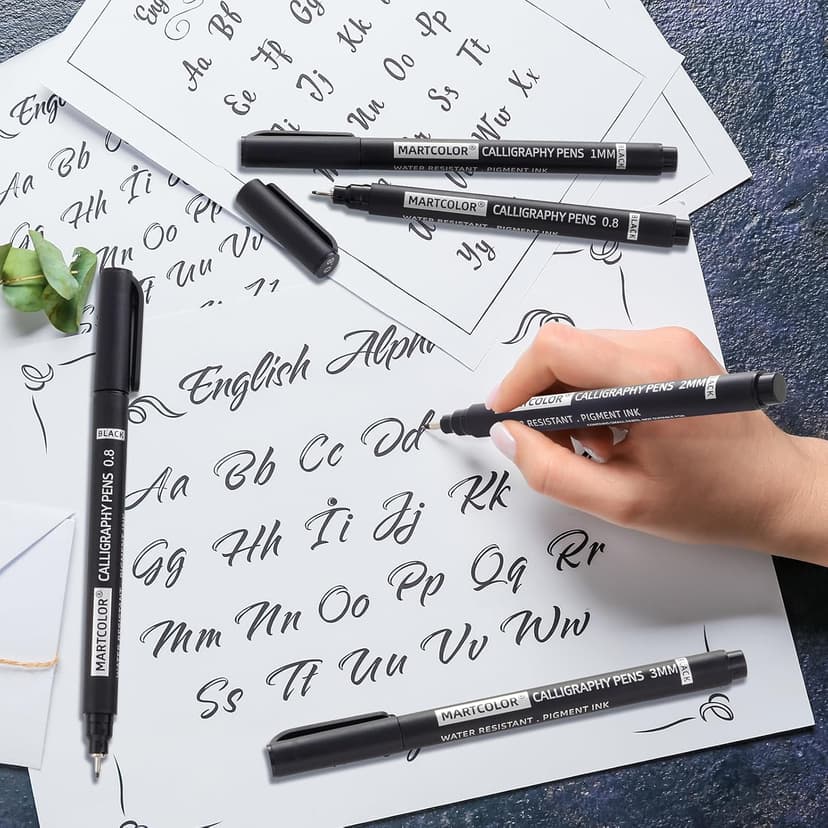 Engl
Aa Bb
Gg
Ee Ff
Kk
Pp
Jj
Oo
Tt
Nn
Ss
Xx
Ww
Yy
Engl
Aa Bb Cc
Hh Ii
Nn Oo Pp
Uu
MARTCOLOR® CALLIGRAPHY PENS 1MM BLACK
WATER RESISTANT . PIGMENT INK
MARTCOLOR® CALLIGRAPHY PENS 0.8 BLACK
WATER RESISTANT . PIGMENT INK
English Alph
MARTCOLOR® CALLIGRAPHY PENS 2MM BLACK
RESISTANT . PIGMENT INK
Aa Bb Cc Dd
Gg Hh İi Jj Kk
Mm Nn Oo Pp Qq Rr
Ss Tt Uu Vv Ww
MARTCOLOR® CALLIGRAPHY PENS 0.8 BLACK
MARTCOLOR® CALLIGRAPHY PENS 3MM BLACK
WATER RESISTANT . PIGMENT INK